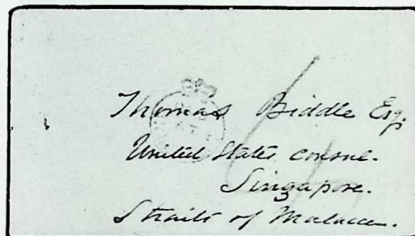 Thomas Biddle Esq.
United States consul.
Singapore.
Straits of Malacca.